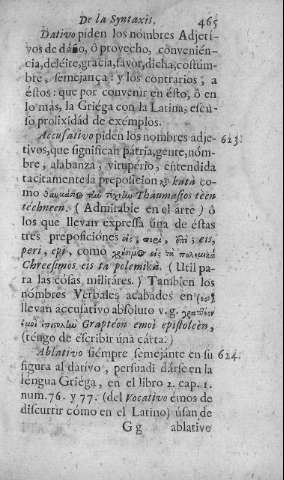 De la Syntaxis. 465
Dativo piden los nombres Adjeti-
vos de dáño, ô provecho, convenién-
cia, deléite, gracia, favor, dicha, costúm-
bre, semejança: y los contrarios, a
éstos: que por convenir en ésto, ô en
lo más, la Griéga con la Latina, escú-
so prolixidad de exemplos.
Acusativo piden los nombres adje- 623.
tivos, que significan patria, gente, nóm-
bre, alabanza, vitupério, entendida
tacitamente la preposicion kata co-
mo Thaumastos teen
teechneen. (Admirable en el arte) ô
los que llevan expressa una de éstas
tres preposiciónes εις, περι, επι, eis,
peri, epi, como
Chreesimos eis ta polemikà. (Util pa-
ra las cósas militáres.) Tambien los
nombres Verbales acabados en
llevan accusativo absoluto v. g.
Graptéon emoi epistoleén,
(téngo de escribir una cárta.)
Ablativo siempre semejánte en su 624.
figura al dativo, persuadi dárse en la
lengua Griéga, en el libro 2. cap. 1.
num. 76. y 77. (del Vocativo émos de
discurrir cómo en el Latino) úsan de
G g ablative